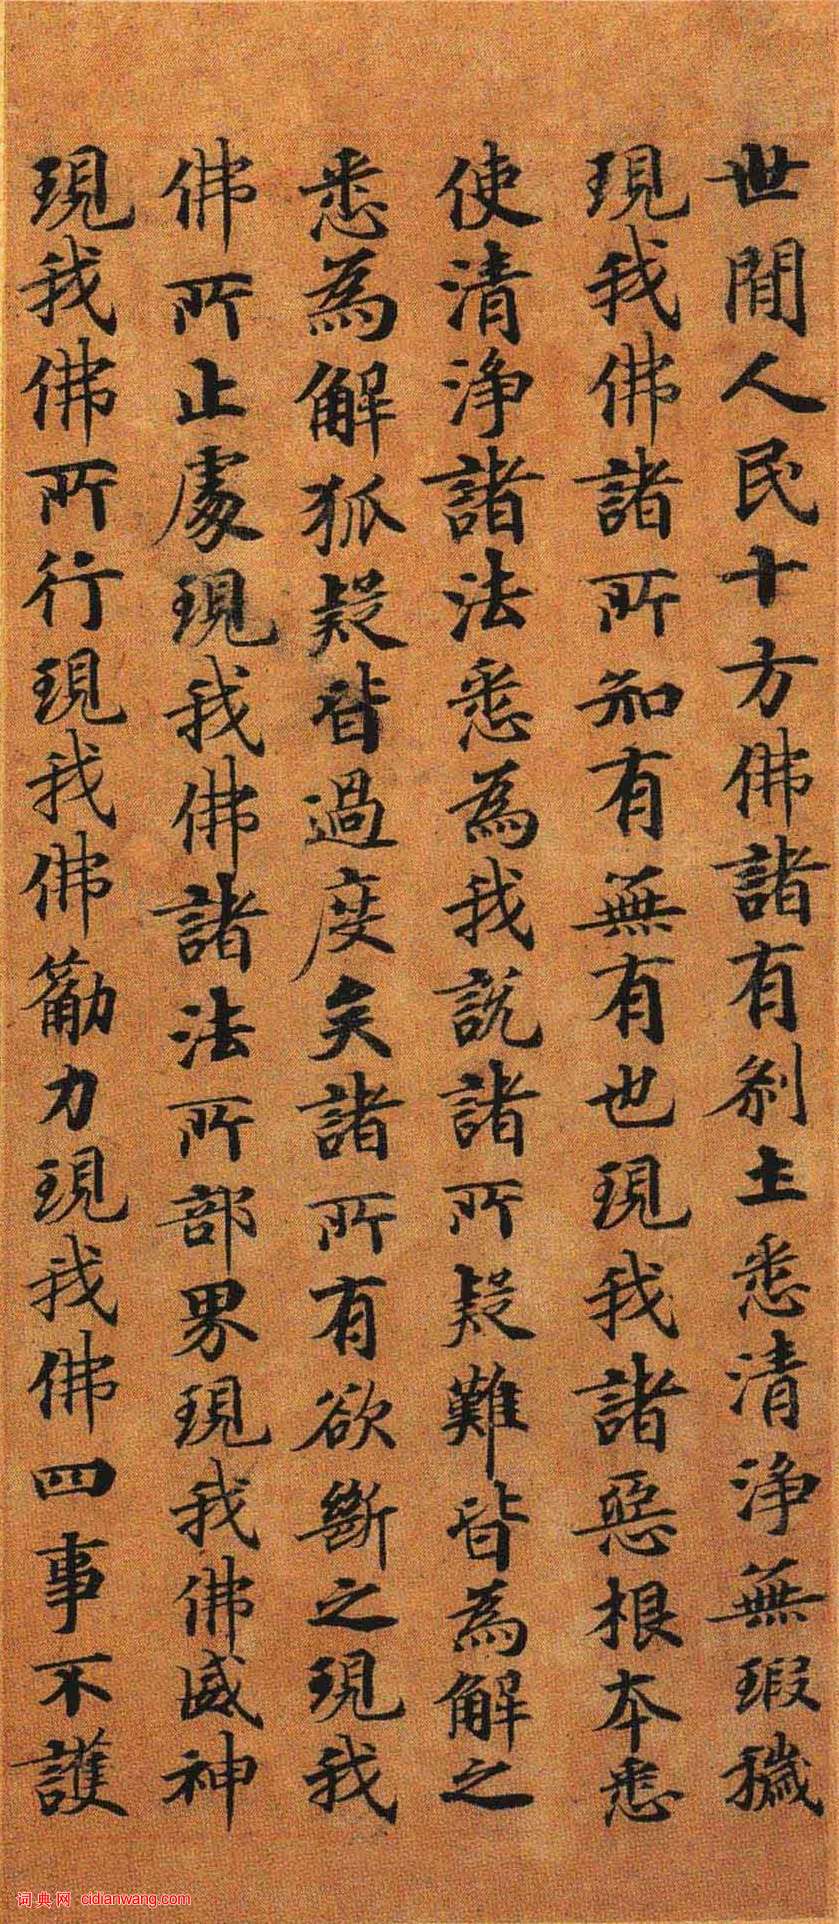 世間人民十方佛諸有剎土悉清淨無瑕穢
現我佛諸所知有無有也現我諸惡根本悉
使清淨諸法悉為我說諸所疑難皆為解之
悉為解狐疑皆過度矣諸所有欲斷之現我
佛所止處現我佛諸法所部界現我佛威神
現我佛所行現我佛筋力現我佛四事不護
词典网 cidianwang.com